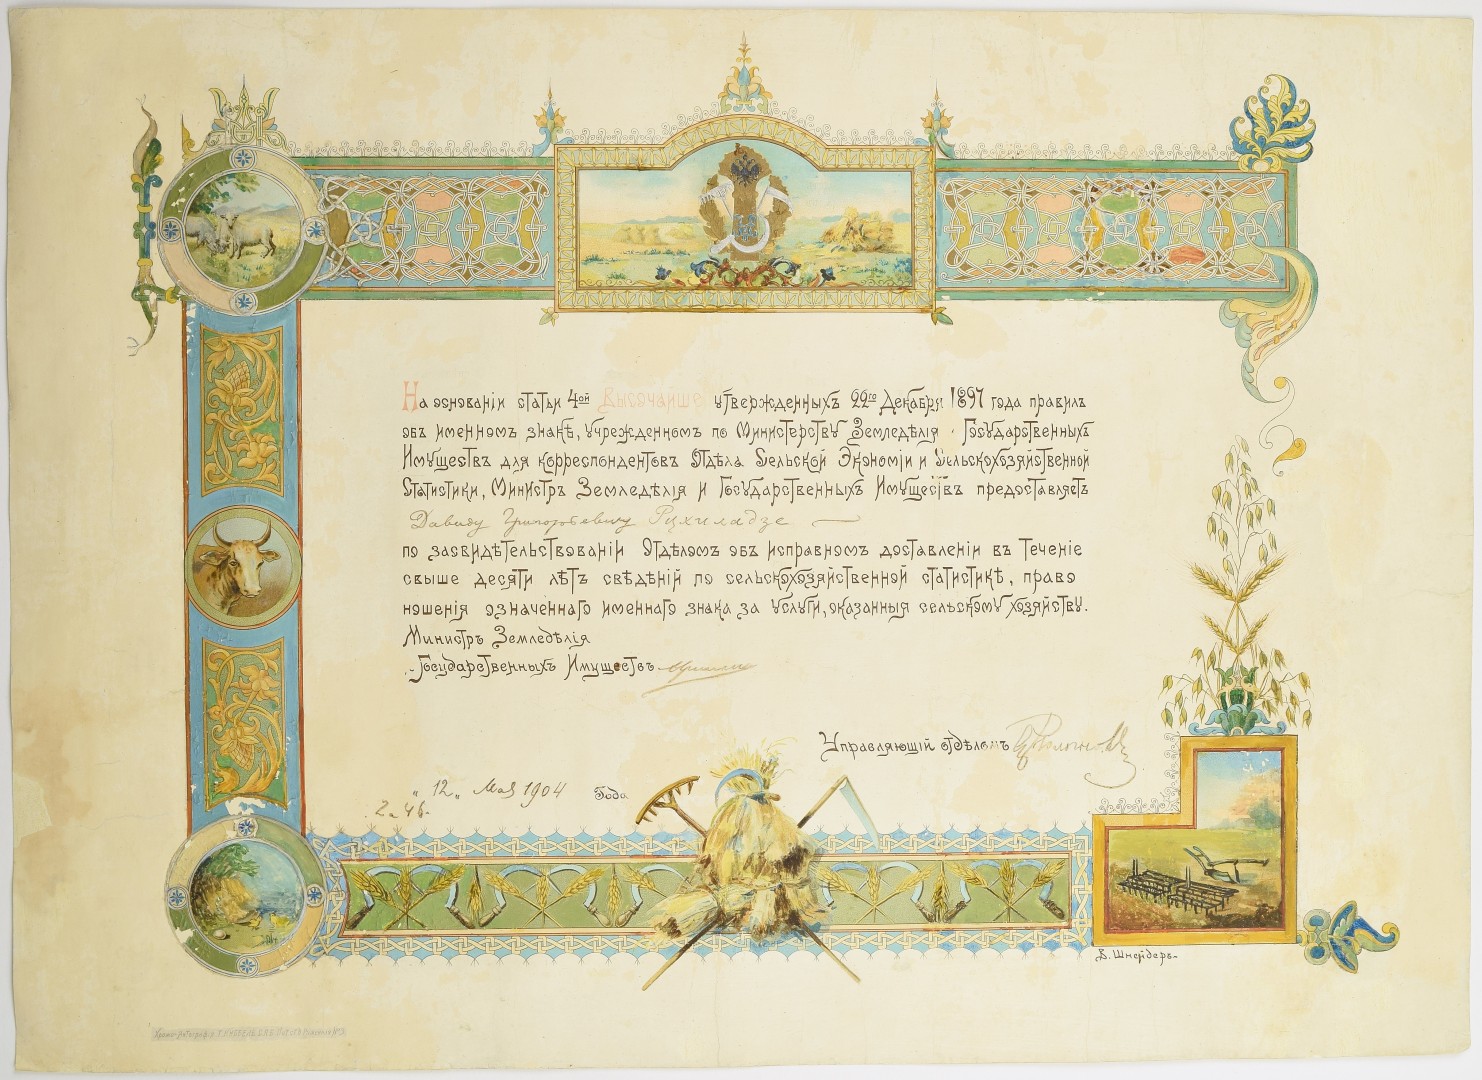 На основаніи статьи 4ой Высочайше утвержденныхъ 22го Декабря 1897 года правилъ
объ именномъ знакѣ, учрежденномъ по Министерству Земледѣлія и Государственныхъ
Имуществъ для корреспондентовъ Отдѣла Сельской Экономіи и Сельскохозяйственной
Статистики, Министръ Земледѣлія и Государственныхъ Имуществъ предоставляетъ
Давиду Григорьевичу Рцхиладзе
по засвидѣтельствованіи Отдѣломъ объ исправномъ доставленіи въ теченіе
свыше десяти лѣтъ свѣдѣній по сельскохозяйственной статистикѣ, право
ношенія означеннаго именнаго знака за услуги, оказанныя сельскому хозяйству.
Министръ Земледѣлія
и Государственныхъ Имуществъ
Управляющій отдѣломъ
"12" Мая 1904 Года
В. Шнейдеръ
Хромо-Литографія